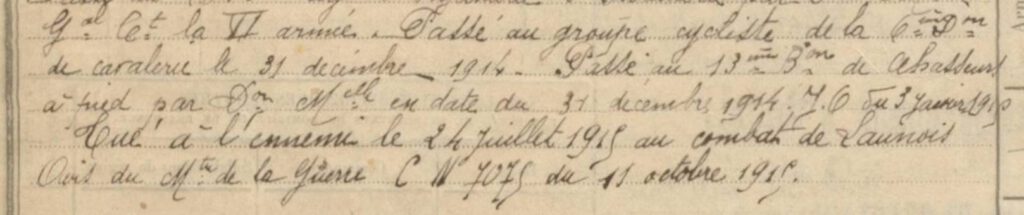 Gal Ct la VI armée. Passé au groupe cycliste de la 6ème Don
de cavalerie le 31 décembre 1914. Passé au 13ème Bon de chasseurs
à pied par Don Melle en date du 31 decembre 1914. J.O du 3 janvier 1915
Tué à l'ennemi le 24 juillet 1915 au combat de Launois
Avis du Mtre de la Guerre C N 7075 du 11 octobre 1915.